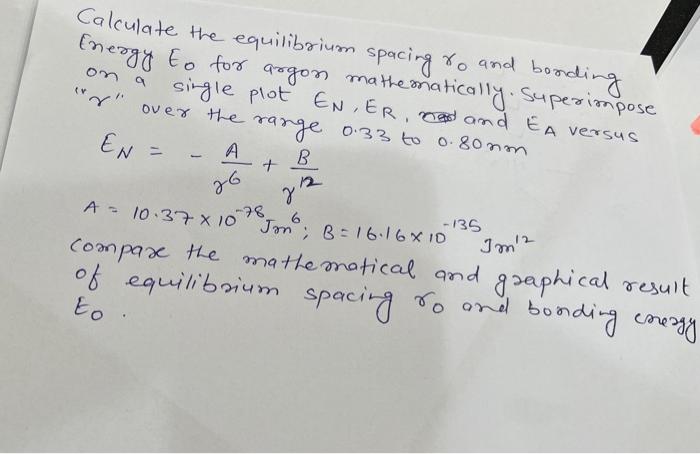 Calculate the equilibrium spacing r₀ and bonding
Energy E₀ for argon mathematically. Superimpose
on a single plot EN, ER, and EA versus
"r" over the range 0.33 to 0.80nm
EN = - A/r⁶ + B/r¹²
A = 10.37 × 10⁻⁷⁸ Jm⁶; B = 16.16 × 10⁻¹³⁵ Jm¹²
Compare the mathematical and graphical result
of equilibrium spacing r₀ and bonding energy
E₀.